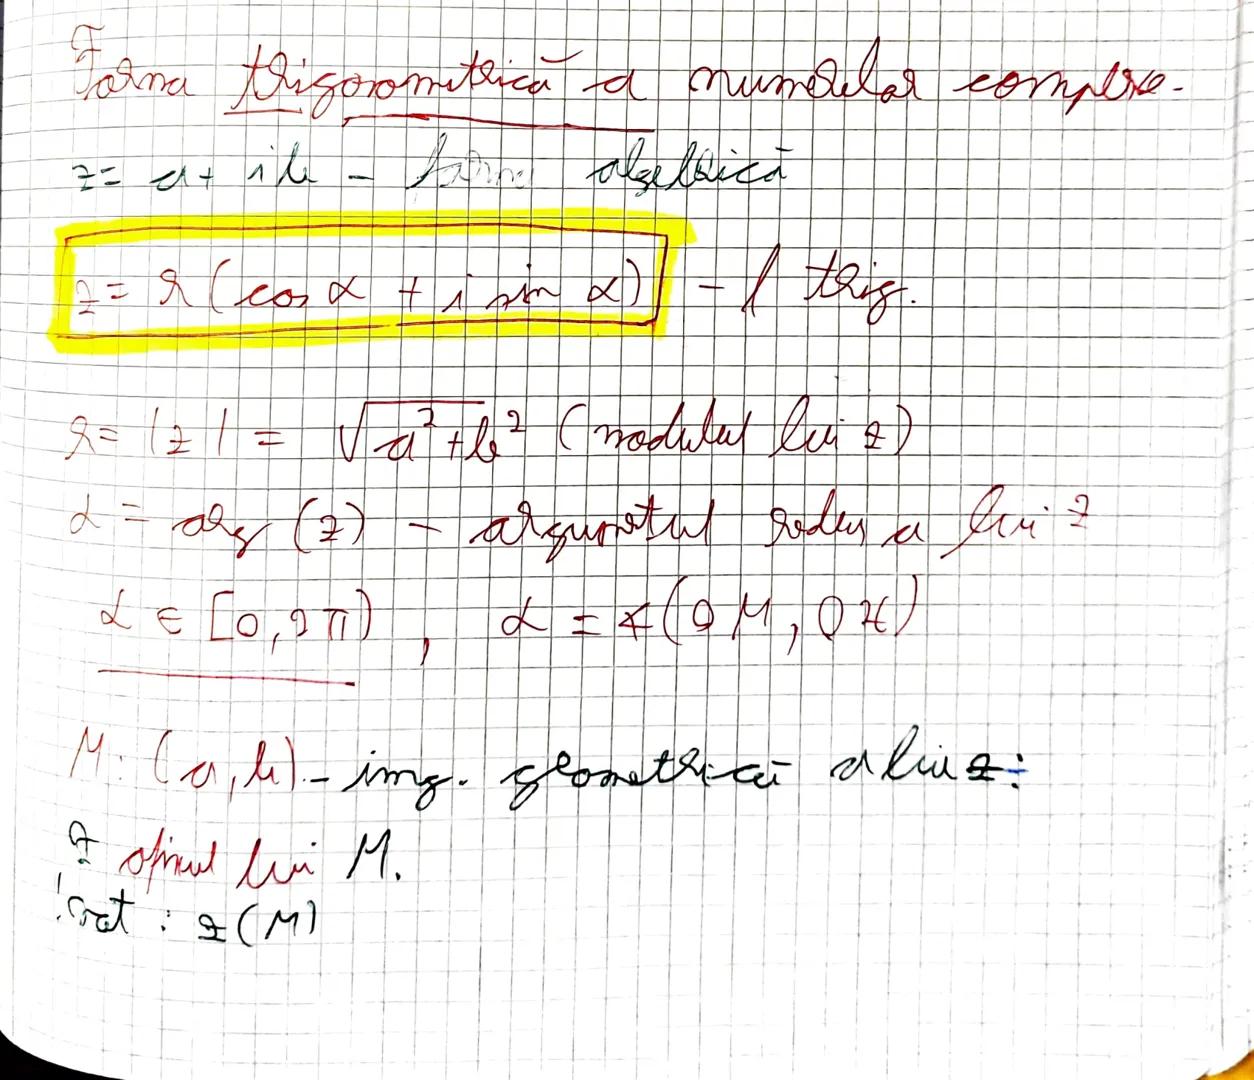 Forma trigonometrică a numerelor complexe.
z = a + ib - forma algebrică
z = r (cos α + i sin α) - f trig.
r = |z| = √a²+b² (modulul lui z)
α = arg (z) - argumetul redus a lui z
α ∈ [0, 2π) , α = ∢(OM, Ox)
M: (a, b) - img. geometrică a lui z:
z afixul lui M.
!not : z(M)